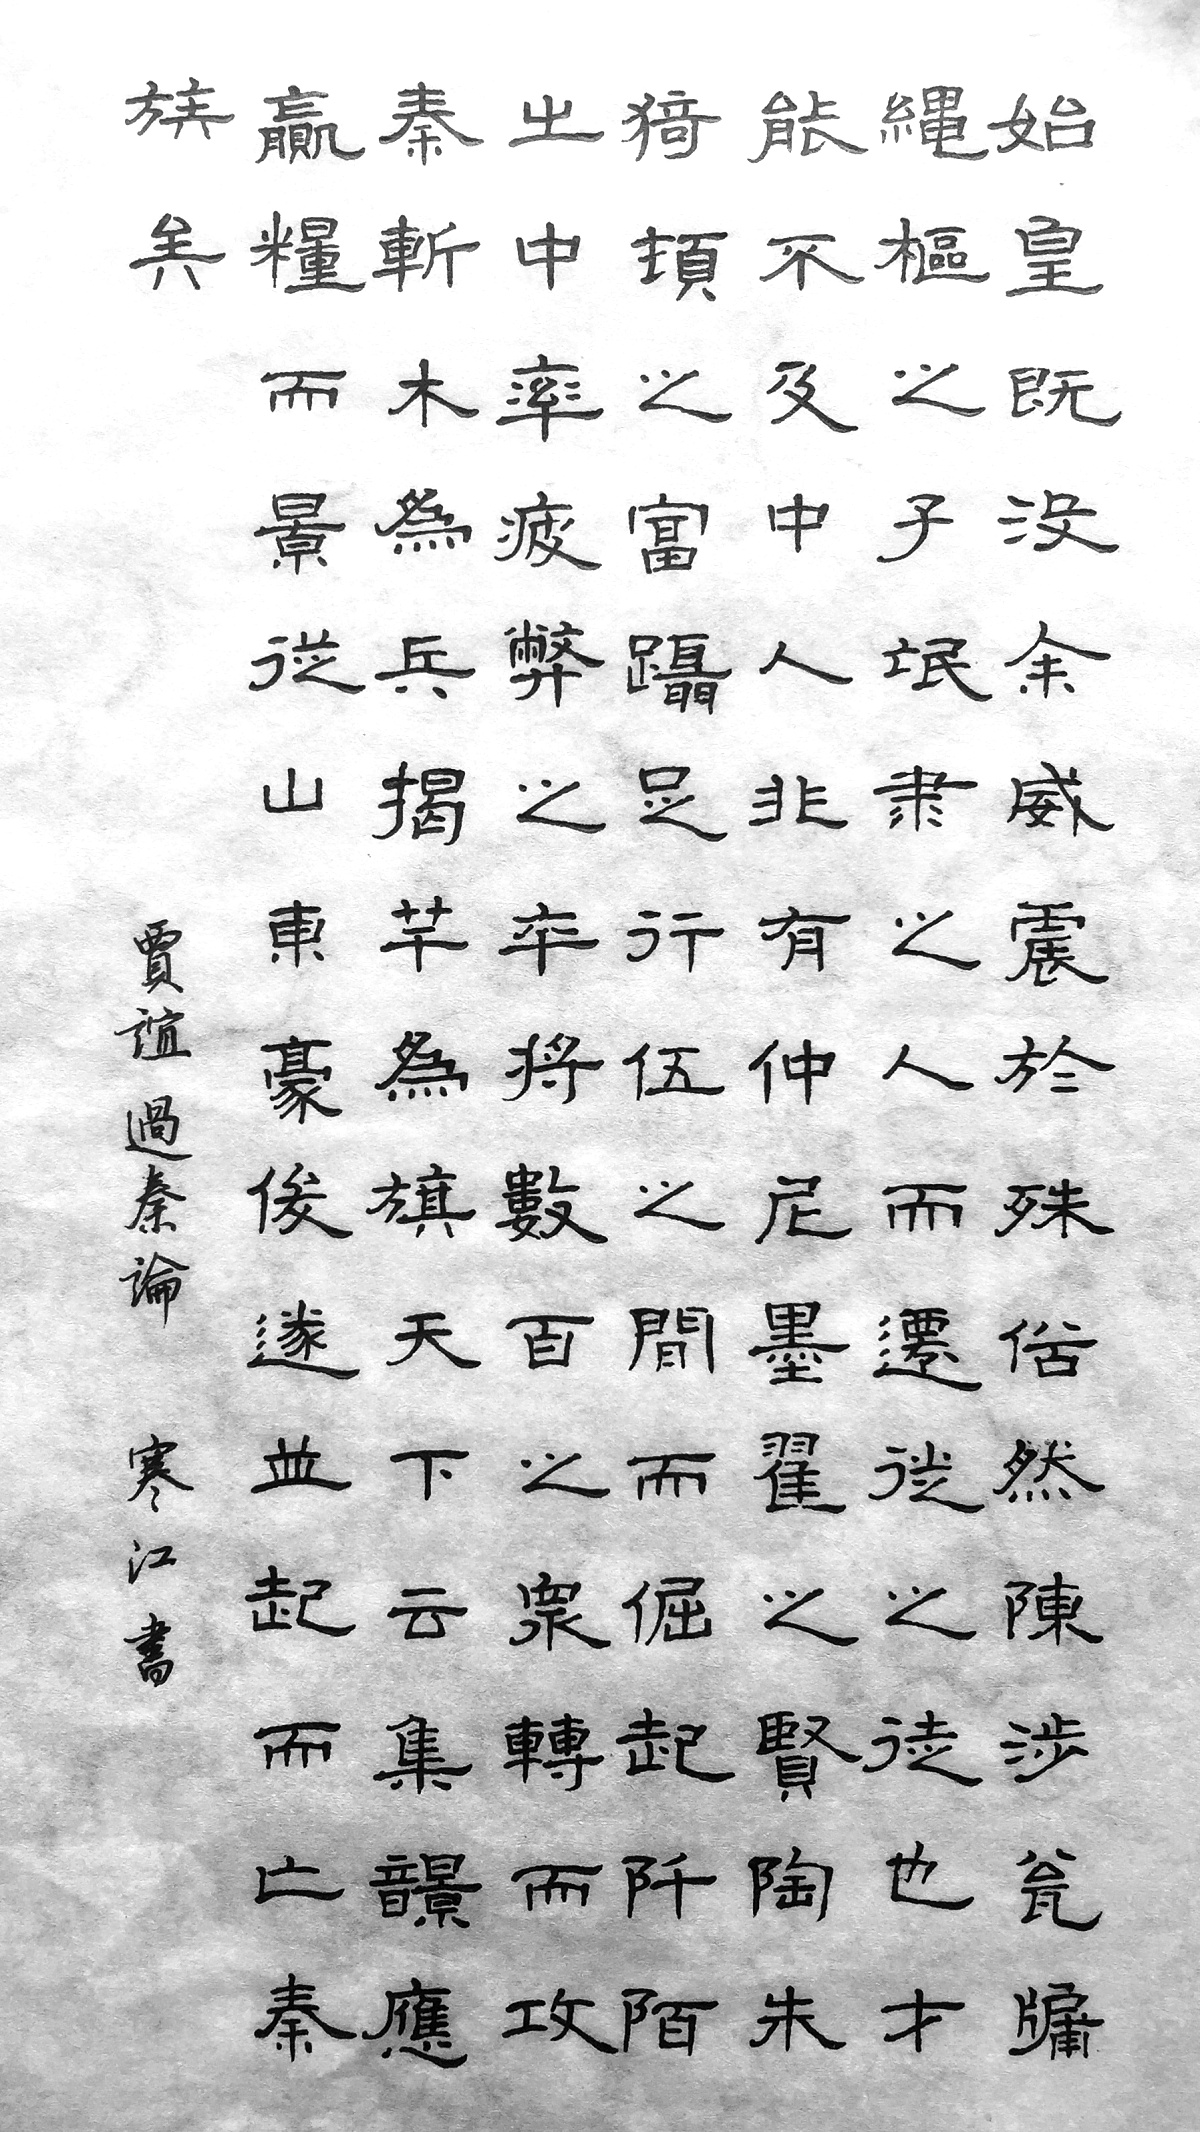 始皇既没余威震於殊俗然陳涉瓮牖
繩樞之子氓隶之人而遷徙之徒也才
能不及中人非有仲尼墨翟之賢陶朱
猗頓之富躡足行伍之間而倔起阡陌
之中率疲弊之卒将數百之衆轉而攻
秦斬木為兵揭竿為旗天下云集響應
贏糧而景從山東豪俊遂並起而亡秦
族矣
賈誼過秦論 寒江書